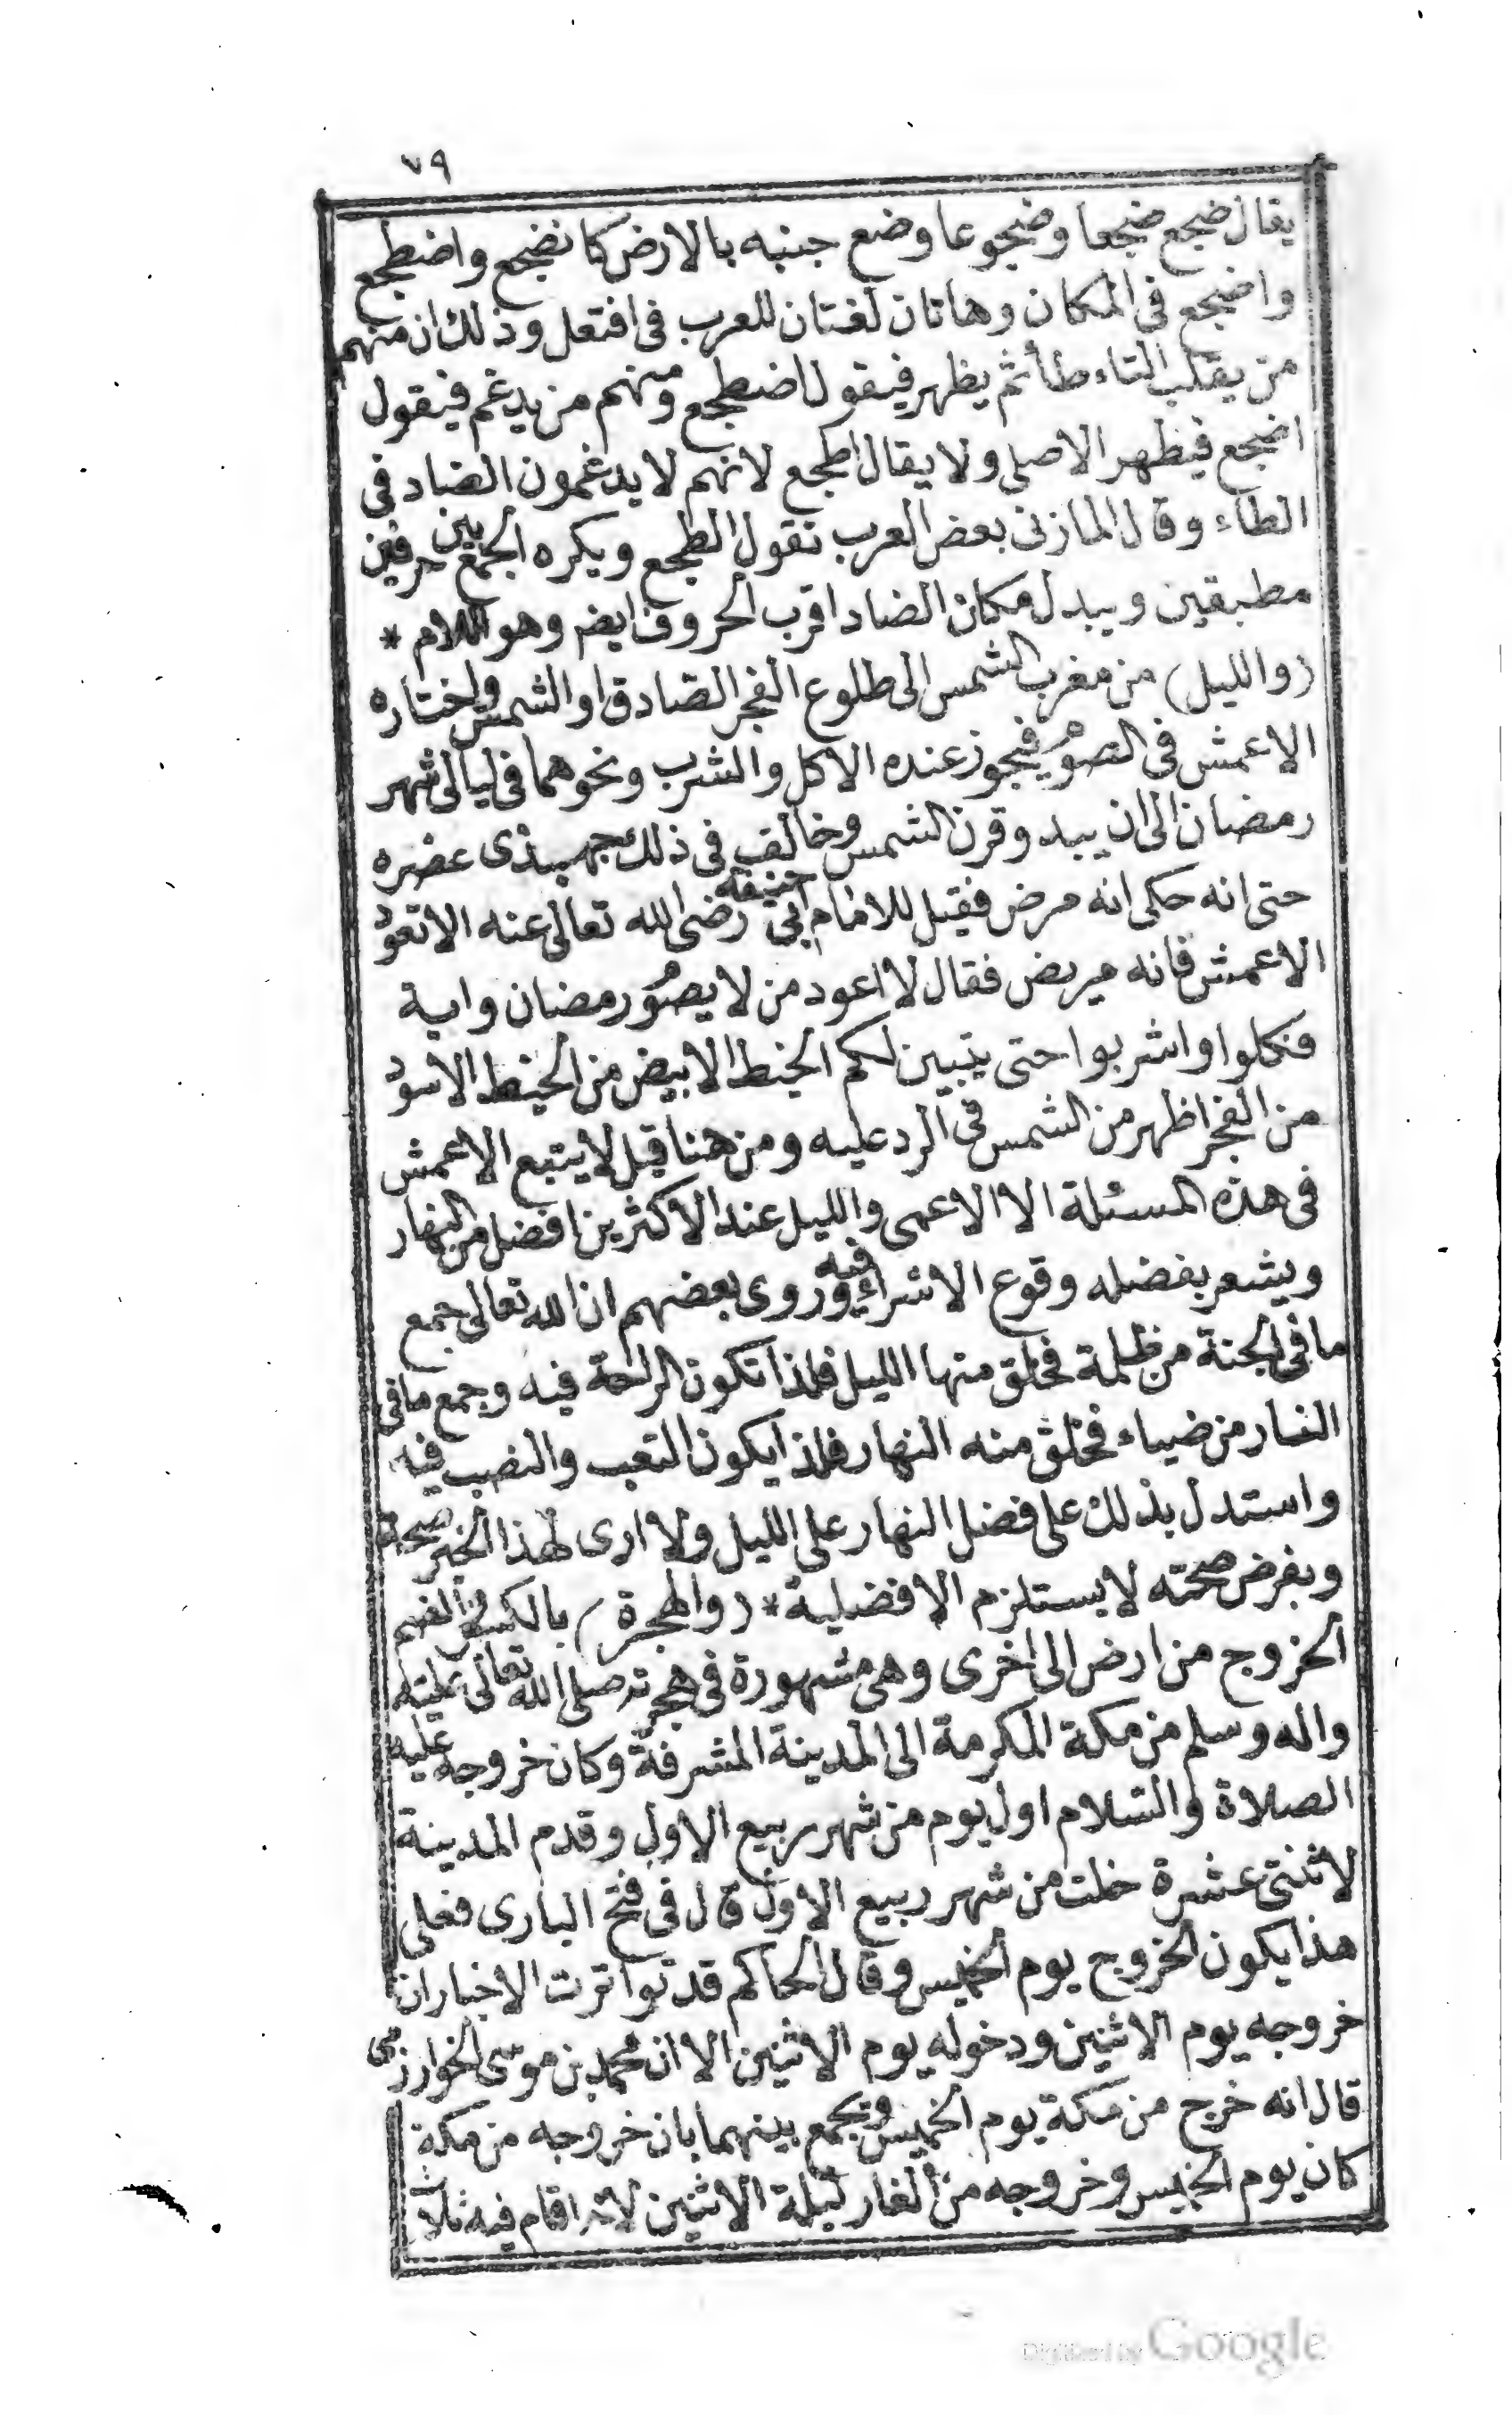 ٧٩
يقال ضجع ضجعا وضجوعا وضع جنبه بالارض كانضجع واضطجع
واضجع في المكان وهاتان لغتان للعرب في افتعل وذلك ان منهم
من يقلب التاء طأ ثم يظهر فيقول اضطجع ومنهم من يدغم فيقول
اضجع فيظهر الاصلي ولا يقال اطجع لانهم لا يدغمون الضاد في
الطاء وقال المازني بعض العرب تقول الطجع ويكره الجمع بين حرفين
مطبقين ويبدل مكان الضاد اقرب الحروف ايضر وهو اللام *
(والليل) من مغرب الشمس الى طلوع الفجر الصادق او الشمس واختاره
الاعمش في الصوم فيجوز عنده الاكل والشرب ونحوهما في ليالى شهر
رمضان الى ان يبدو قرن الشمس وخالف في ذلك جهبذى عصره
حتى انه حكى انه مرض فقيل للامام ابى حنيفة رضى الله تعالى عنه الا تعود
الاعمش فانه مريض فقال لا اعود من لا يصوم رمضان واية
فكلوا واشربوا حتى يتبين لكم الخيط الابيض من الخيط الاسود
من الفجر اظهر من الشمس في الرد عليه ومن هنا قيل لا يتبع الاعمش
في هذه المسئلة الا الاعمى والليل عند الاكثرين افضل من النهار
ويشعر بفضله وقوع الاسراء فيه وروى بعضهم ان الله تعالى جمع
ما في الجنة من ظلمة فخلق منها الليل فلذا تكون الراحة فيه وجمع ما في
النار من ضياء فخلق منه النهار فلذا يكون التعب والنصب فيه
واستدل بذلك على فضل النهار على الليل ولا ارى لهذا الخبر صحة
وبفرض صحته لا يستلزم الافضلية * (والهجرة) بالكسر والضم
الخروج من ارض الى اخرى وهى مشهورة في هجرته صلى الله تعالى عليه
واله وسلم من مكة المكرمة الى المدينة المشرفة وكان خروجه عليه
الصلاة والسلام اول يوم من شهر ربيع الاول وقدم المدينة
لاثنتى عشرة خلت من شهر ربيع الاول قال في فتح البارى فعلى
هذا يكون الخروج يوم الخميس وقال الحاكم قد تواترت الاخبار ان
خروجه يوم الاثنين ودخوله يوم الاثنين الا ان محمد بن موسى الخوارزمى
قال انه خرج من مكة يوم الخميس ويجمع بينهما بان خروجه من مكة
كان يوم الخميس وخروجه من الغار ليلة الاثنين لانه اقام فيه ثلاث
Digitized by Google